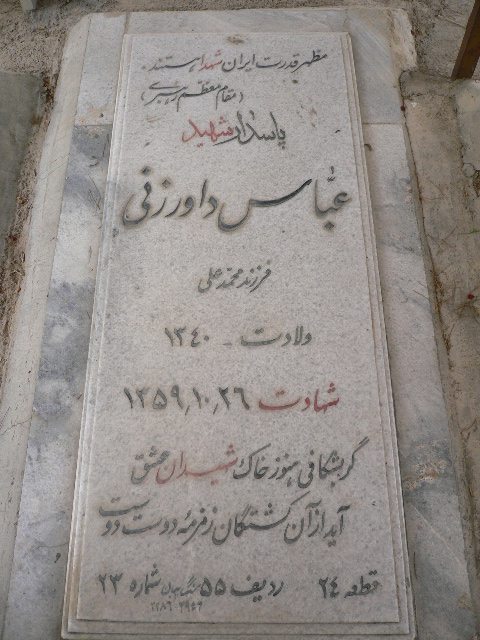 مظهر قدرت ایران شهدا هستند
(مقام معظم رهبری)
پاسدار شهید
عبّاس داورزنی
فرزند محمّد علی
ولادت - ۱۳۴۰
شهادت ۱۳۵۹,۱۰,۲۶
گر بشکافی هنوز خاک شهیدان عشق
آید از آن کشتگان زمزمهٔ دوست دوست
قطعه ۲۴ ردیف ۵۵ شماره ۲۳